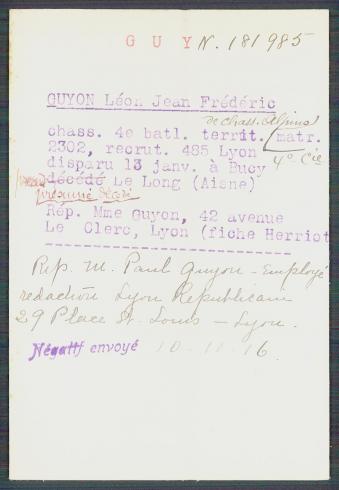 G U Y N. 181985
GUYON Léon Jean Frédéric
de chass. Alpins
chass. 4e batl. territ. matr.
2302, recrut. 485 Lyon 4e Cie
disparu 13 janv. à Bucy
décédé Le Long (Aisne)
présumé décédé
Rép. Mme Guyon, 42 avenue
Le Clerc, Lyon (fiche Herriot
Rép. M. Paul Guyon - Employé
redaction Lyon Republicain
29 Place St. Louis - Lyon.
Négatif envoyé 10-11-16.